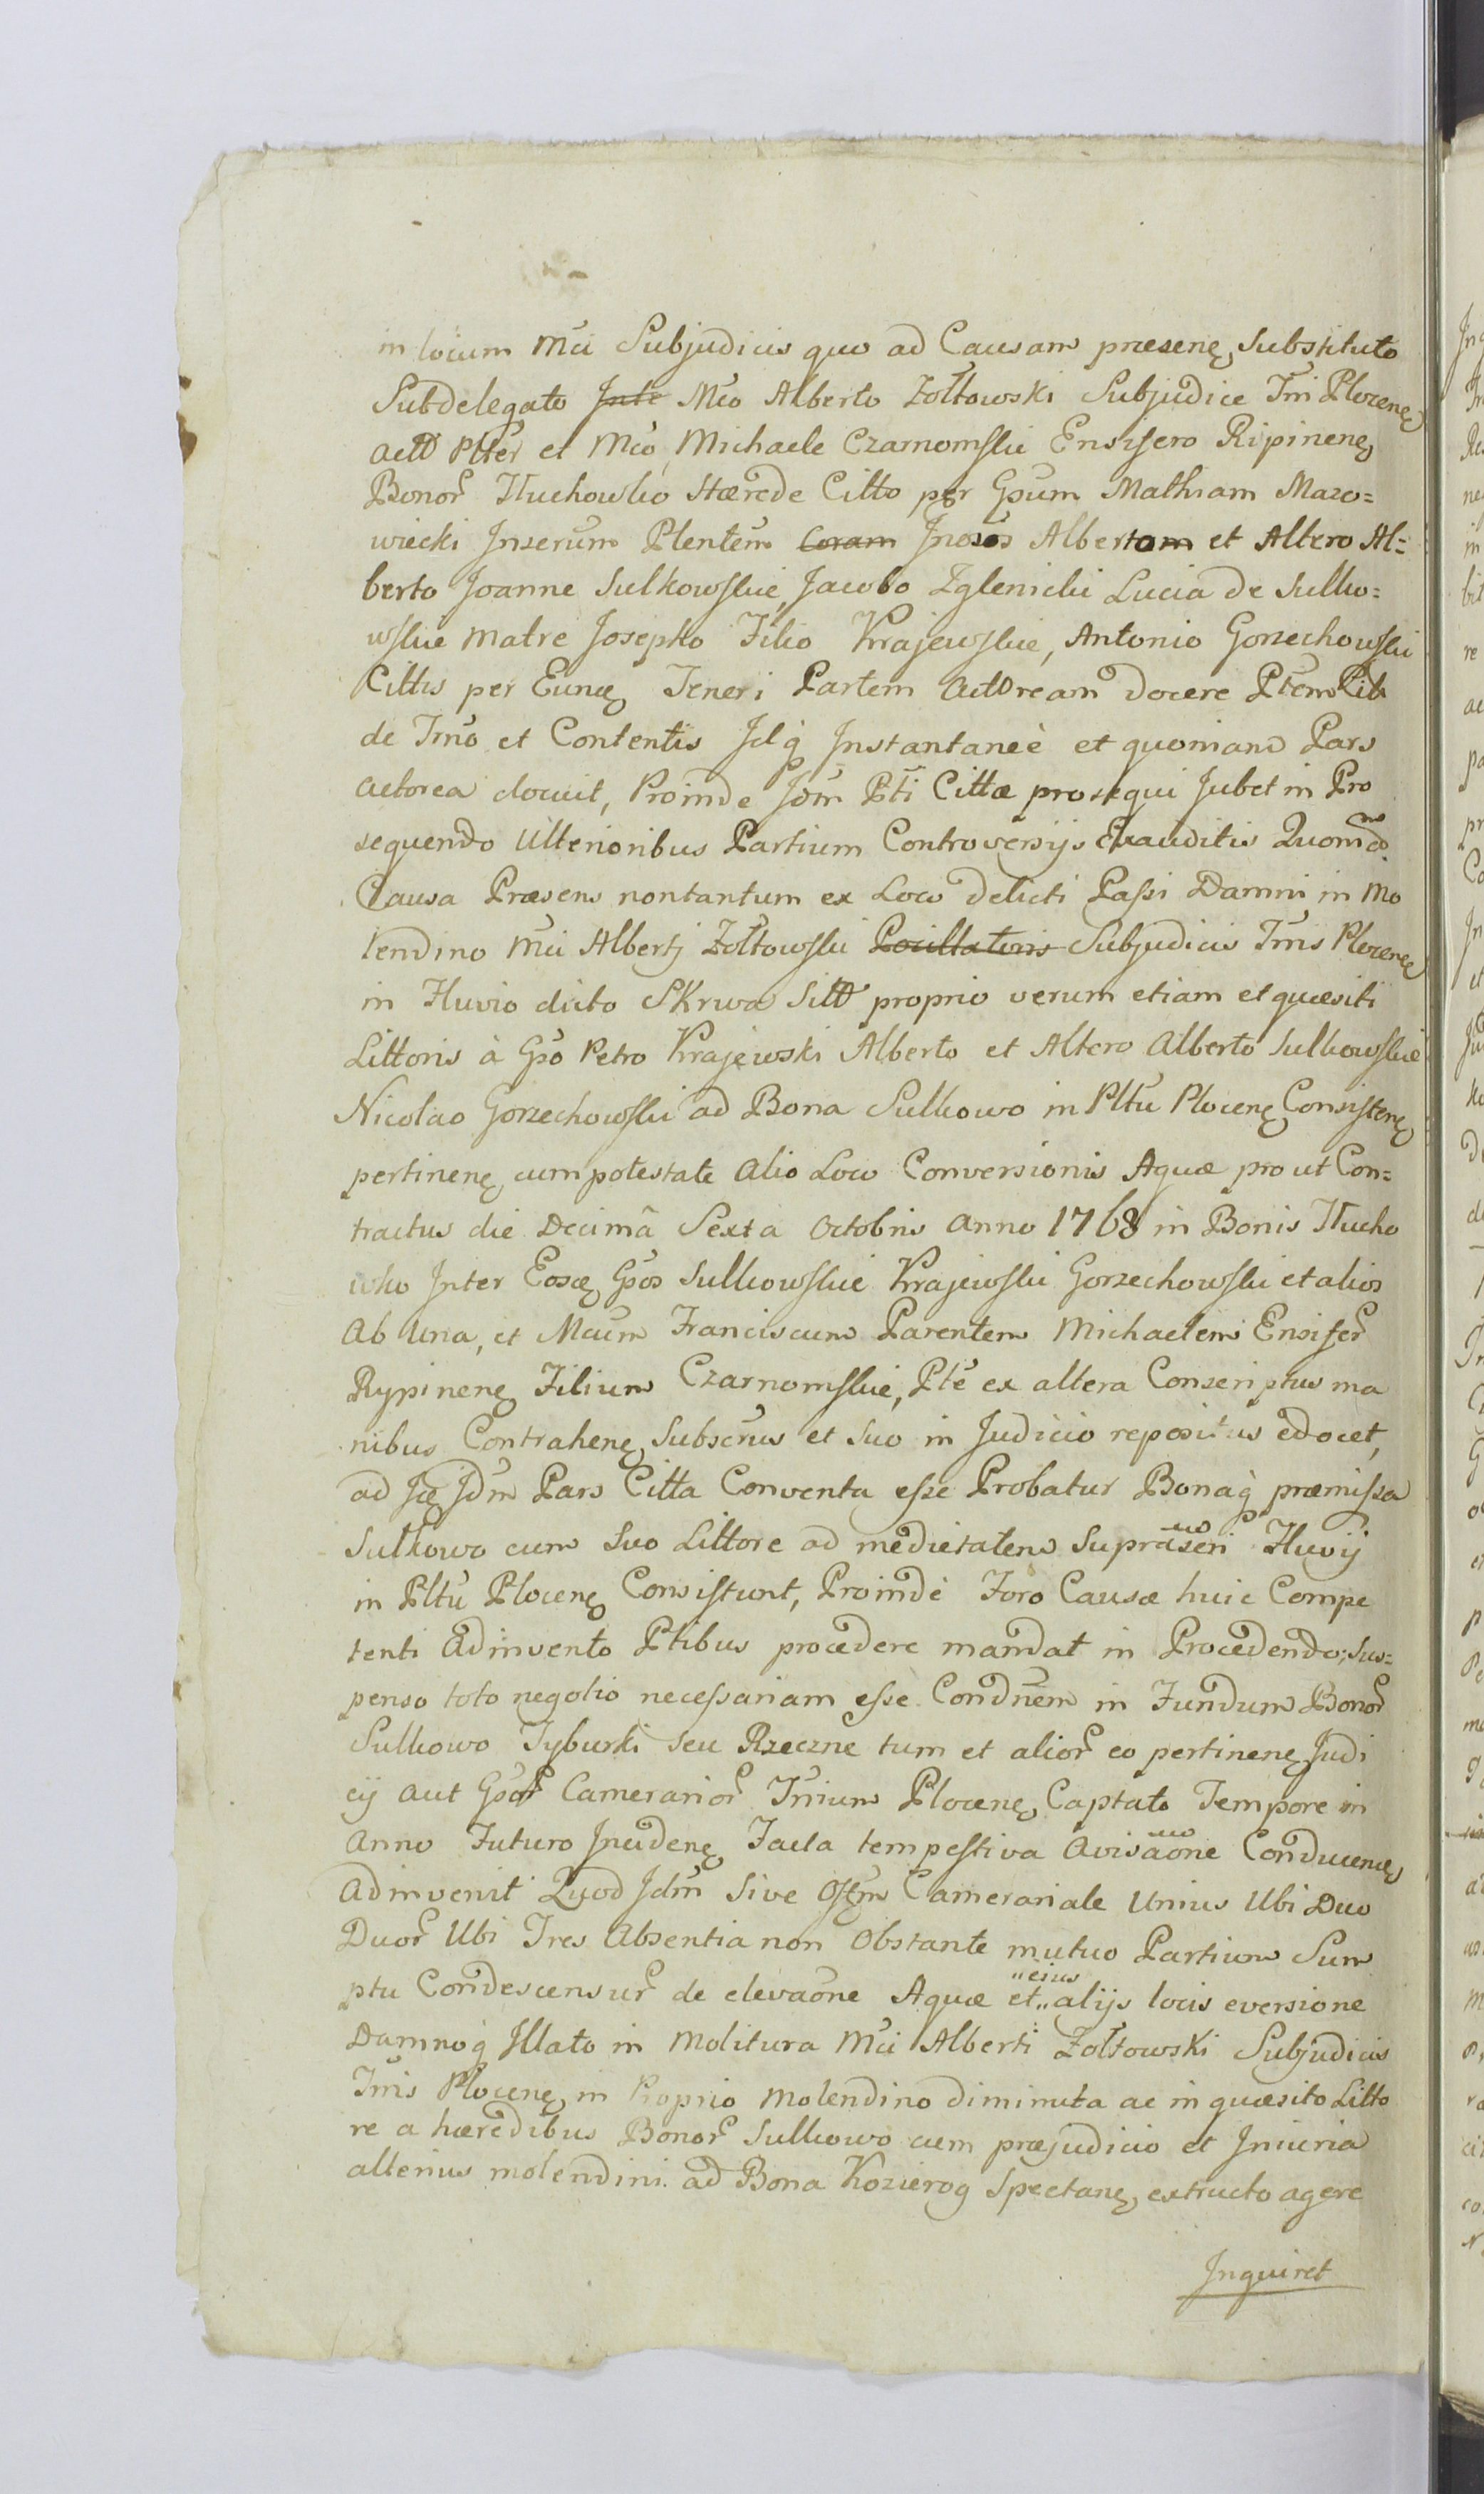 in locum Mci Subjudicis quo ad Causam præsenę Substituto
Subdelegato Mco Alberto Zołtowski Subjudice Trri Plocenę
Actt Plter et Mco Michaele Czarnomskie Ensifero Ripinenę
Bonor Tłuchowko Hærede Citto per Gsum Mathiam Mazo=
wiecki Inserum Plentem Coram Albertom et Altero Al=
berto Joanne Sulkowskie, Jacobo Zglenicki Lucia de Sulko=
wskie Matre Josepho Filio Krajewskie, Antonio Gorzechowski
Cittis per Eunę Teneri Partem Actoream docere Ptem Citt
de Trno et Contentis Idq Instantaneè et quoniam Pars
actorea docuit, Proinde Jdm Pti Cittæ prosequi Jubet in Pro
sequendo Ulterioribus Partium Controversijs Exauditis Quomodo
Causa Præsens nontantum ex Loco delicti Passi Damni in Mo
lendino Mci Albertj Zołtowski Pocillatoris Subjudicis Trris Plocenę
in Fluvio dicto Skrwa Sitto proprio verum etiam et quæsiti
Littoris à Gso Petro Krajewski Alberto et Altero Alberto Sulkowskie
Nicolao Gorzechowski ad Bona Sulkowo in Pltu Plocenę Consistenę
pertinenę cum potestate alio Loco Conversionis Aquæ pro ut Con=
tractus die Decimâ Sexta Octobris Anno 1768 in Bonis Tłucho
wko Inter Eosdę Gsos Sulkowskie Krajewski Gorzechowski et alios
Ab Una, et Mcum Franciscum Parentem Michaelem Ensifer
Rypinenę Filium Czarnomskie, Pte ex altera Conseriptus ma
nibus Contrahenę Subscrus et Suo in Judicio repositus edocet,
ad Jdm Pars Citta Conventa esse Probatur Bonaq præmissa
Sulkowo cum Suo Littore ad medietatem Suprascri Fluvij
in Pltu Plocenę Consistunt, Proindè Foro Causæ huic Compe
tenti Adinvento Ptibus procedere mandat in Procedendo; Sus=
penso toto negotio necessariam esse Condnem in Fundum Bonor
Sulkowo Tyburki seu Rzeczne tum et alior eo pertinenę Judi
cij aut Gsor Camerarior Trrium Plocenę Captato Tempore in
Anno Futuro Incidenę Facta tempestiva Avisaone Conducenę
Adinvenit Quod Jdm Sive Offm Camerariale Unius Ubi Duo
Duor Ubi Tres Absentia non Obstante mutuo Partium Sum
ptu Condescensur de elevaone Aquæ et "eius" alijs locis eversione
Damnoq Illato in Molitura Mci Alberti Zołtowski Subjudicis
Trris Plocenę in Proprio Molendino diminuta ac in quæsito Litto
re a hæredibus Bonor Sulkowo cum præjudicio et Iniuria
alterius molendini ad Bona Kozierog Spectanę, extructo agere
Inquiret